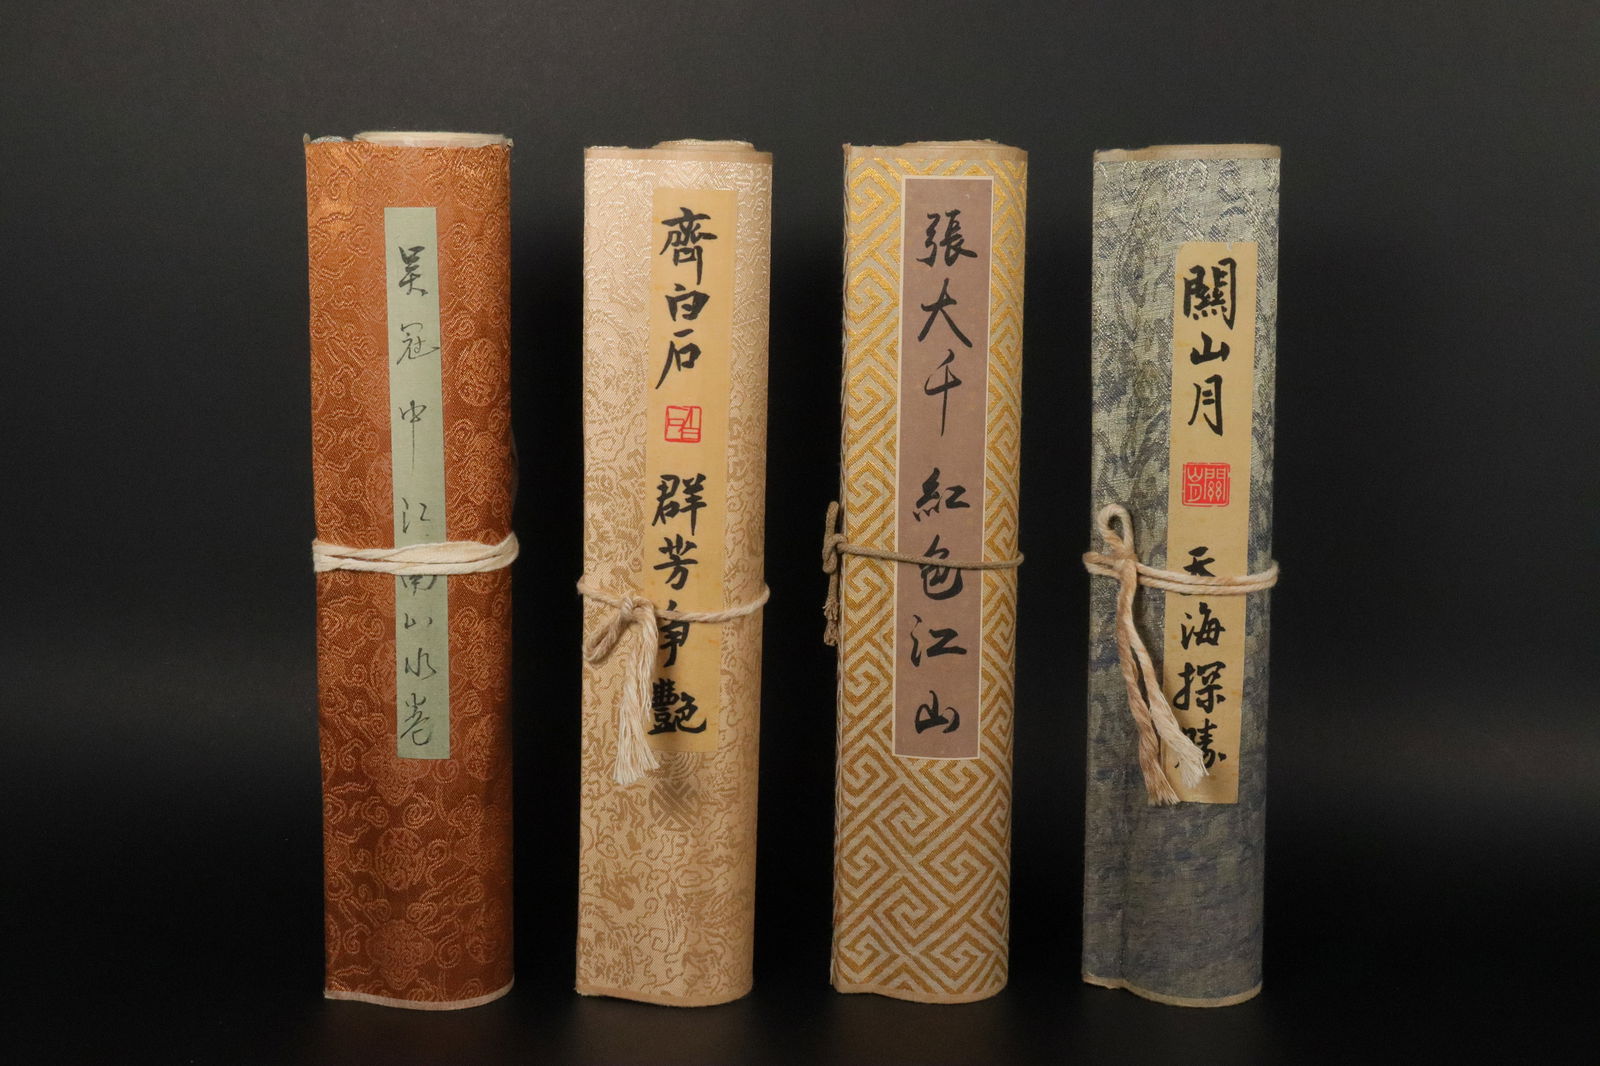 吴冠中江南山水卷
齊白石
群芳争艷
張大千紅色江山
關山月
關山月
天海探勝